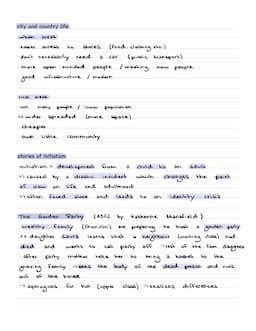 city and country life
urban areas
easier access to stores (food, clothing etc.)
don't necessarily need a car (public transport)
more open-minded people / meeting new people
good infrastructure / modern
rural areas
not many people / lower population
wider spreaded (more space)
cheaper
own little community
stories of initiation
initiation = development from a child to an adult
caused by a drastic incident which changes the point
of view on life and adulthood
often faced alone and leads to an identity crisis
The Garden Party (1922 by Katherine Mansfield)
wealthy family (Sheridan) are preparing to host a garden party
daughter Laura learns that a neighbour (working class) had
died and wants to call party off rest of the fam disagrees
after party mother tells her to bring a basket to the
grieving family sees the body of the dead person and runs
out of the house
apologises for hat (upper class) realizes differences